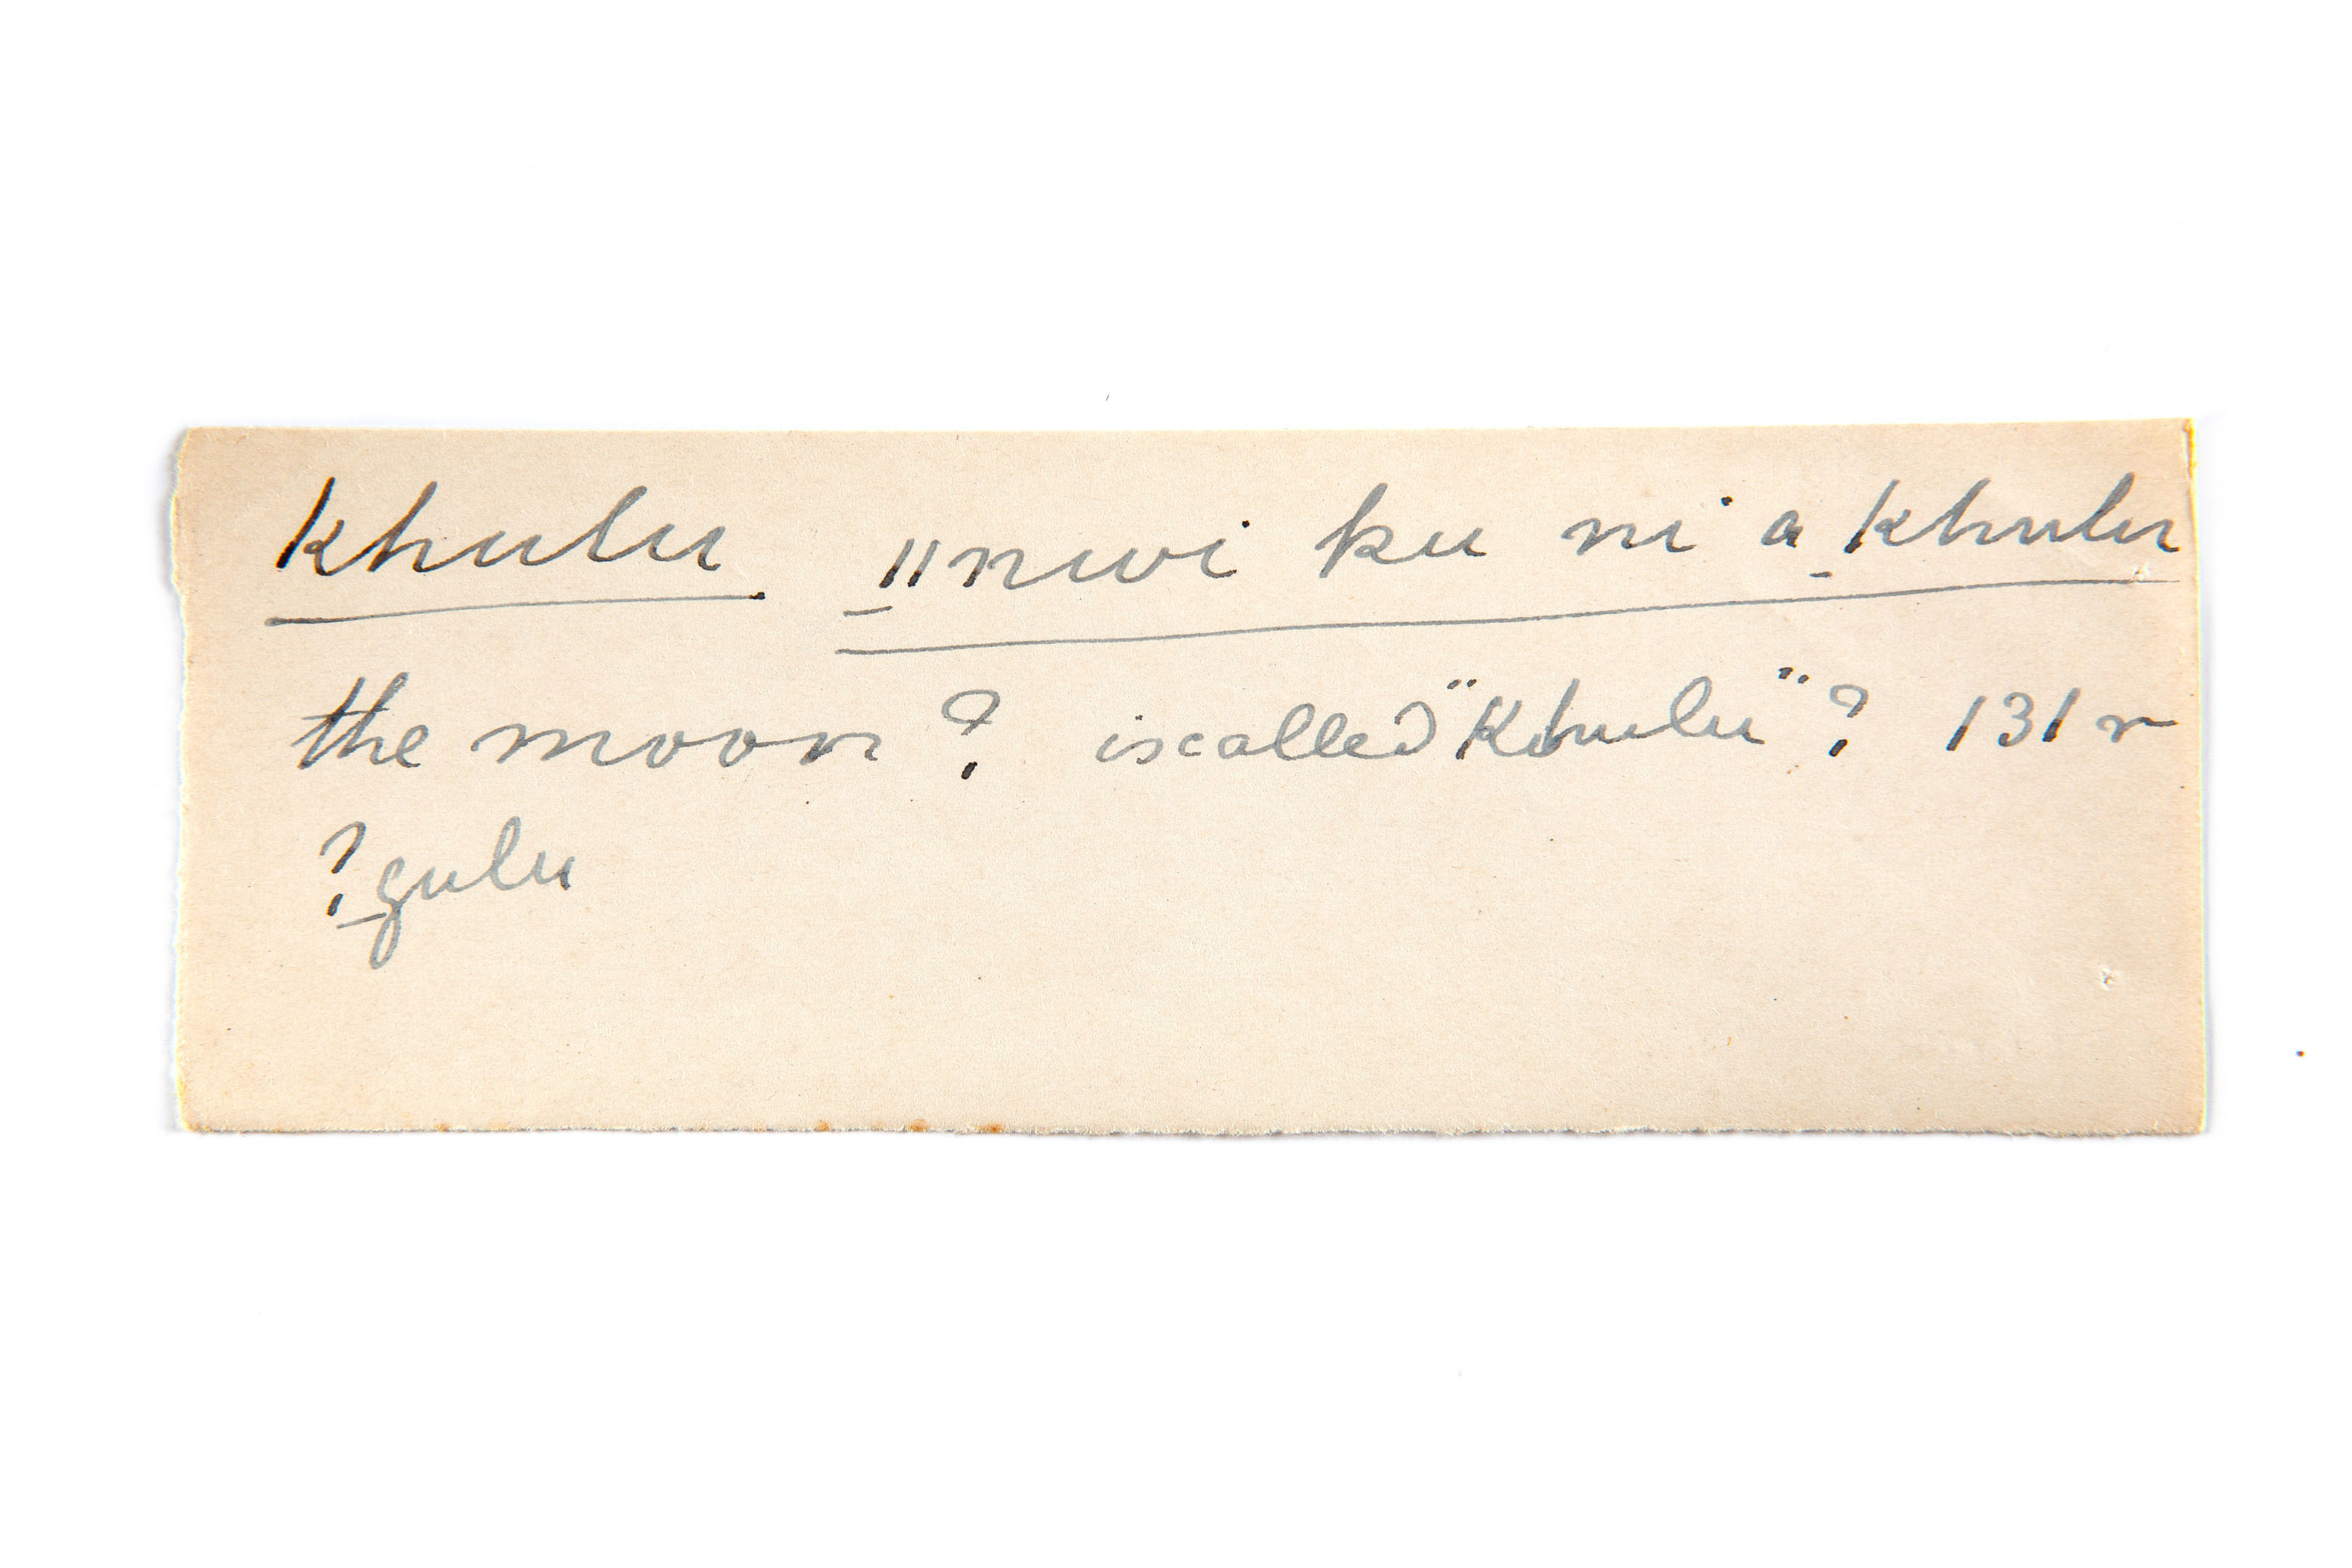 khulu ǁnwi ku ni a khulu
the moon ? is called "Khulu" ? 131 r
? gulu